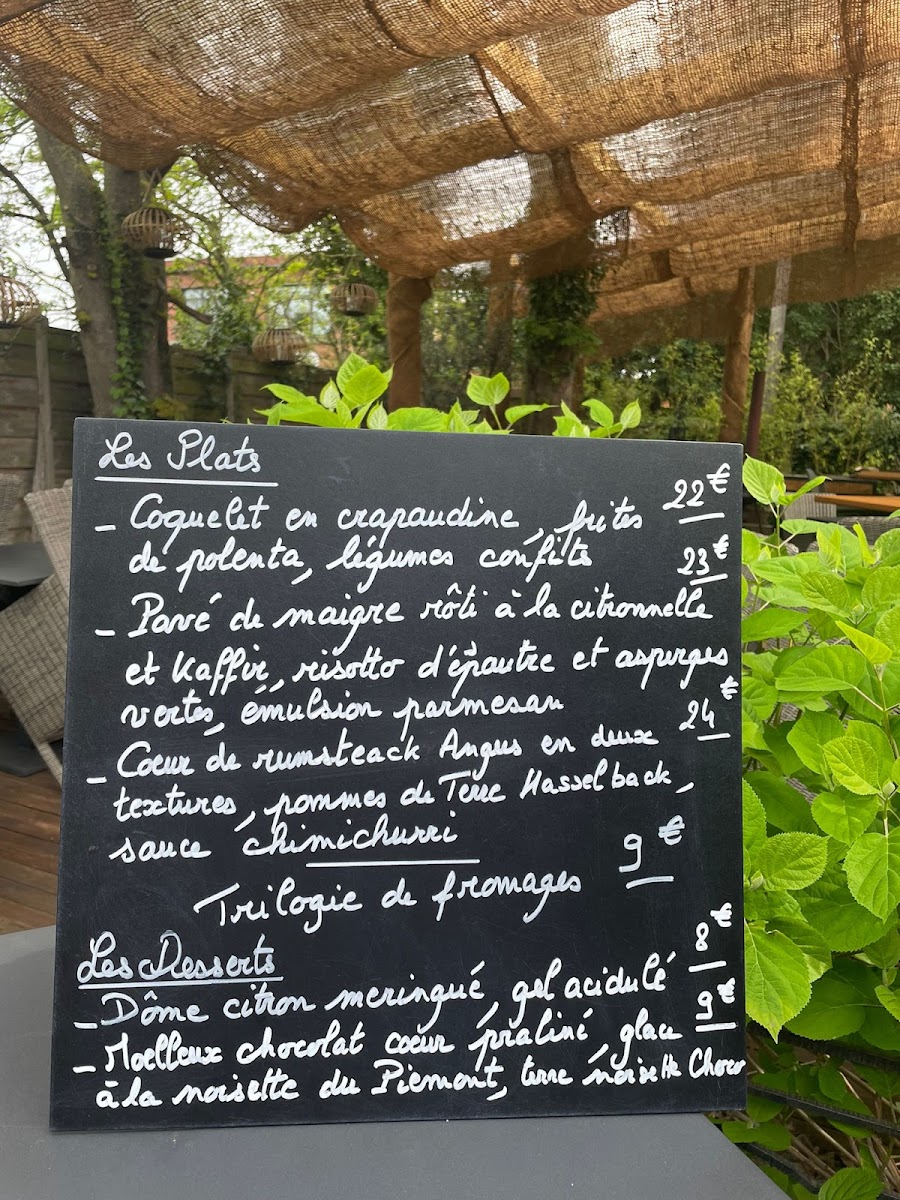 Les Plats
- Coquelet en crapaudine, frites 22€
de polenta, légumes confits
- Pavé de maigre rôti à la citronnelle 23€
et Kaffir, risotto d'épautre et asperges
vertes, émulsion parmesan
- Coeur de rumsteack Angus en deux 24€
textures, pommes de Terre Hasselback,
sauce chimichurri
Trilogie de fromages 9€
Les Desserts
- Dôme citron meringué, gel acidulé 8€
- Moelleux chocolat coeur praliné, glace 9€
à la noisette du Piemont, terre noisette Choco